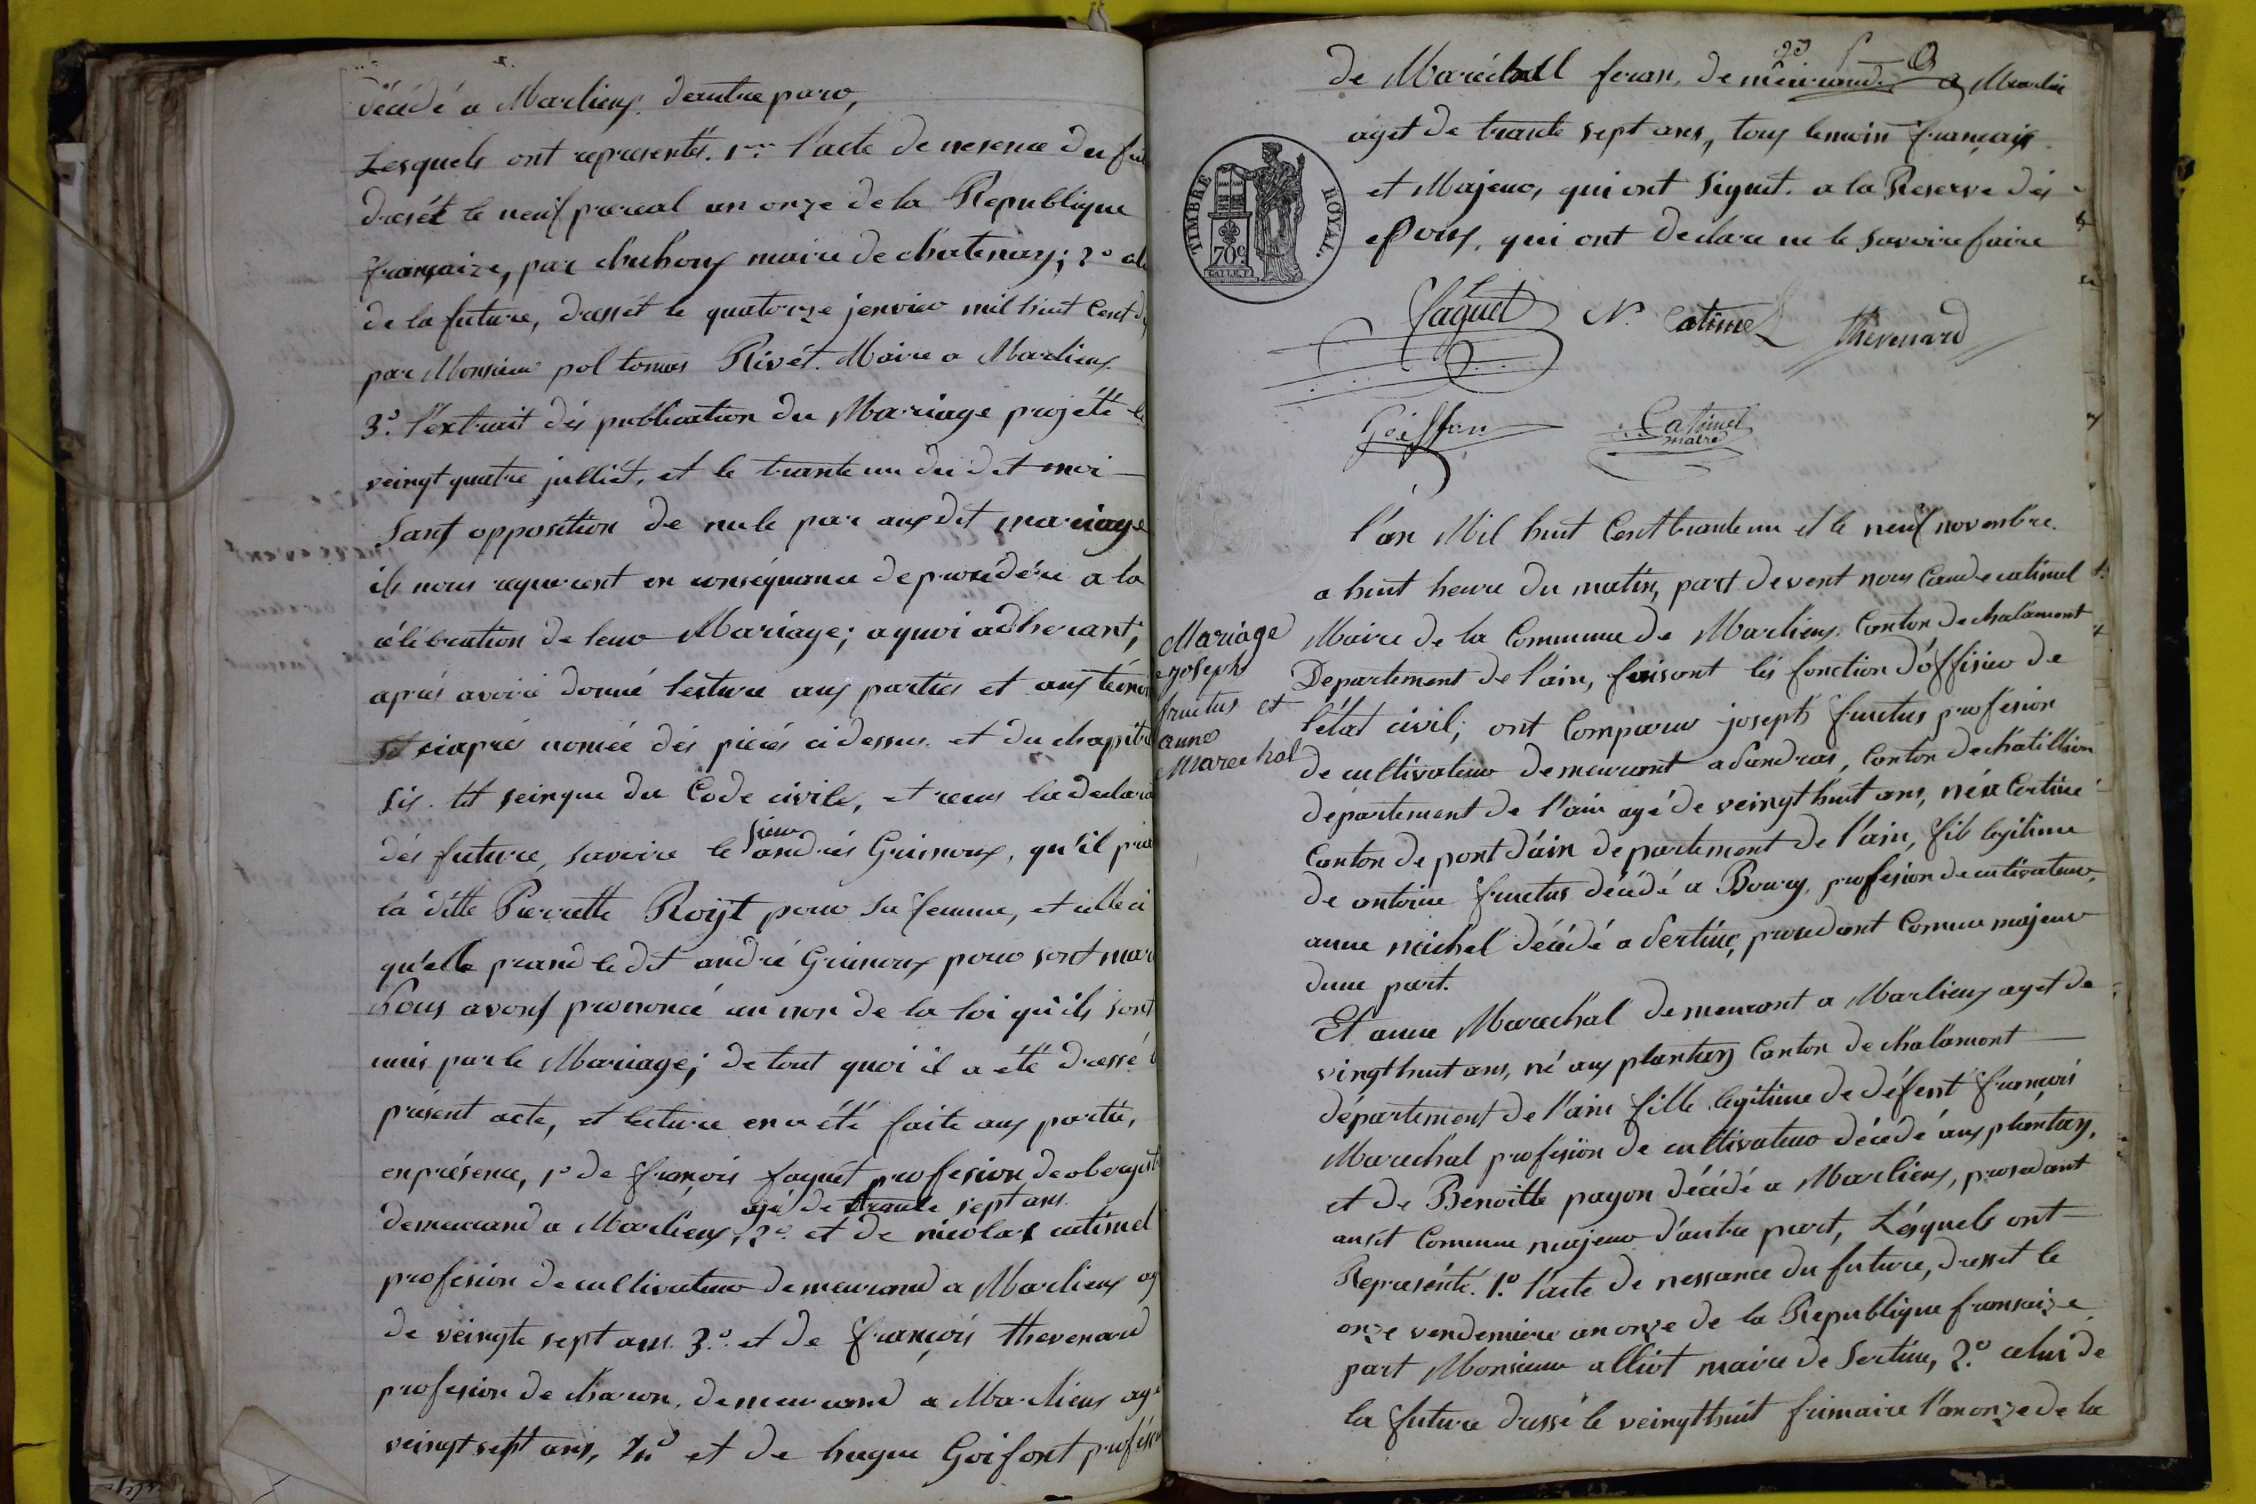 décédé a Marlieux d'autre parv,
Lesquels ont representés. 1mt l'acte de nesence du fu
dresét le neuf prereal an onze de la Republique
françaize, par chuhoux maire de chatenay; 2° 
de la future, dassét le quatorze jenvier mil huit Cent
par Monsieur pol tomas Rivét. Maire a Marlieux.
3.° l'extrait dés publication du Mariage projété le
veingt quatre julliét, et le trante un du dit moi
Sant opposition de nule par aux dit mariage
ils nous requerent en conséquance de procédére a la
célébration de leur Mariage; a quoi adherant;
aprés avoire donné lecture aux parties et aux témoi
sit ciaprés nomée dés piecés cidessus. et du chapitre
sis. tit seinque du Code civile, et recus la declara
dés future, savoire le sieur andrés Guinoux, qu'il prie
la ditte Pierrette Royt pour sa femme, et celle ci
qu'elle prand le dit andré Guinoux pour sont mar
Nous avons prononcé au non de la loi qu'ils sont
unis par le Mariage; de tout quoi il a été dressé l
présent acte, et lecture en a été faite aux partie,
en présence, 1° de françois faguét profesion de obergist
agé de trante sept ans.
demeurand a Marlieux, 2° et de nicolas catimel
profesion de cultivateur demeurand a Marlieux ag
de veingte sept ans. 3.° et de françois thevenard
profesion de charon, demeurand a Marlieux ag
veingt sept ans, 4° et de hugue Goifont profess
de Maréchall feran, demeurand a Marlie
aget de trante sept ans, tous temoin français
et Majeur, qui ont signét. a la Reserve dés
Epoux, qui ont declare ne le savoire faire
TIMBRE ROYAL.
70c
faguet N. Catimel thevenard
Goiffon Catimel
maire
l'an Mil huit Cent trante un et le neuf novembre
a huit heure du matin, part devent nous Caude catimel
Maire de la Commune de Marlieux Canton de chalamont
Departement de l'ain, faisant lés fonction d'offisier de
l'état civil; ont Comparus joseph fructus profesion
de cultivateur demeurant a Sandras, Canton de chatillion
département de l'ain agé de veingt huit ans, né a Certine
Canton de pont d'ain departement de l'ain, fils legitime
de antoine fructus décédé a Bourg, profesion de cultivateur,
anne michel décédé a Sertine, prosedant Comme majeur
dune part.
Mariage
joseph
fructus et
anne
Marechal
Et anne Marechal demeurant a Marlieux aget de
vingt huit ans, né aux plantay Canton de chalamont
département de l'ain fille legitime de défent françois
Marechal profesion de cultivateur décédé aux plantay,
et de Benoitte payon décédé a Marlieux, prosedant
ausit Comme majeur d'autre part, Lésquels ont
Représénté. 1.° l'acte de nessance du future, dressét le
onze vendemiere an onze de la Republique fransaize
part Monsieur alliot maire de Sertine, 2.° celui de
la future dressé le veingt huit frimaire l'an onze de la